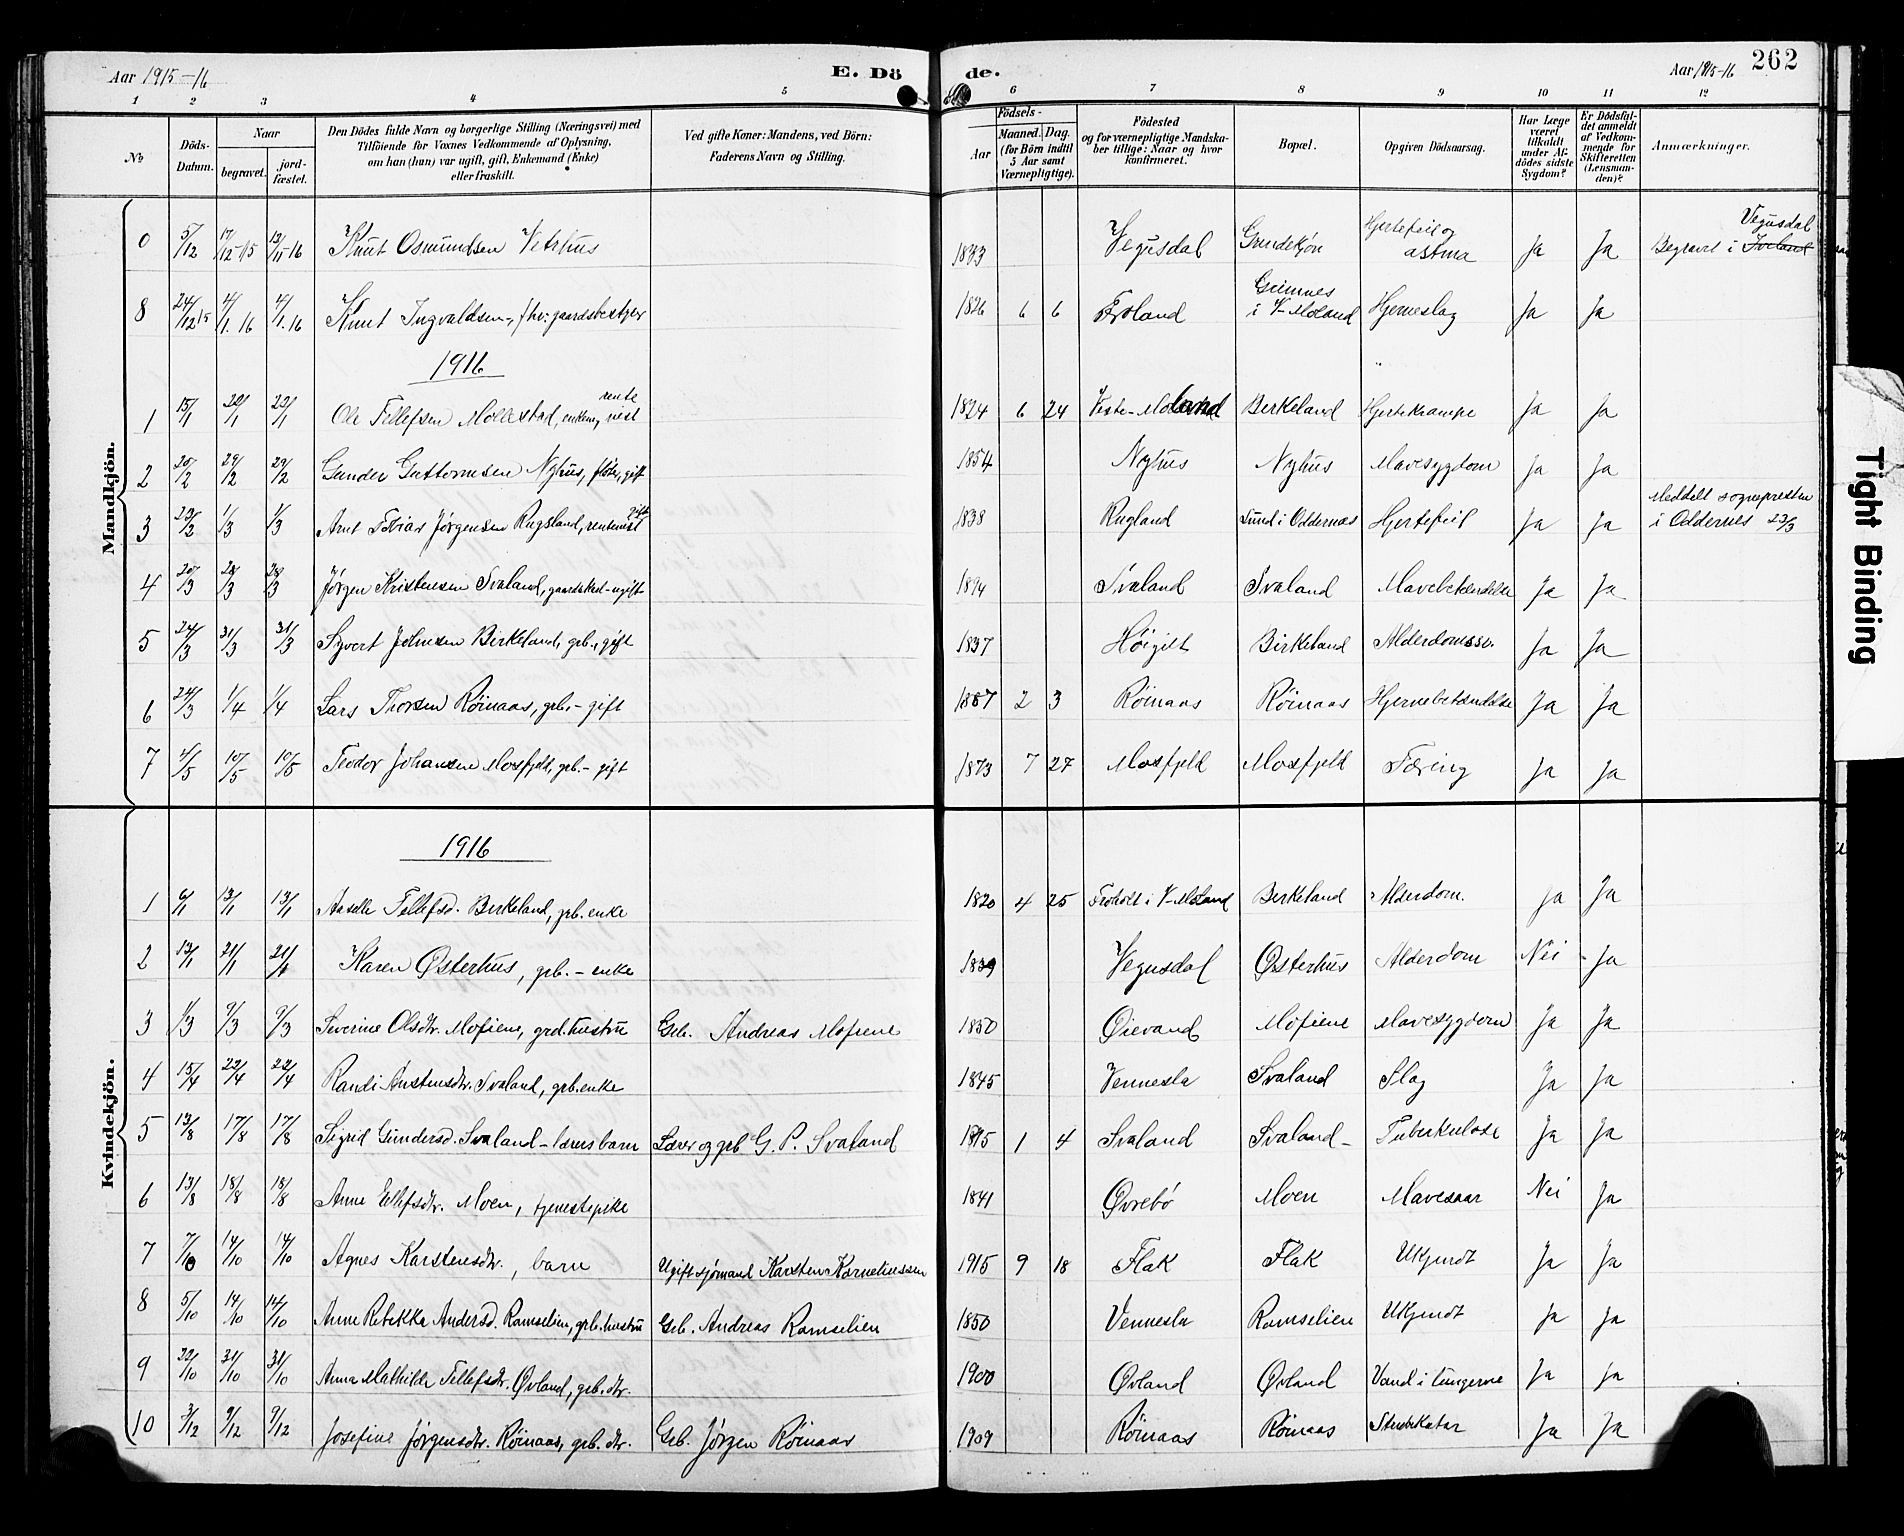 Aar 1915-16 E. Dö de. Aar 1915-16 262
1 2 3 4 5 6 7 8 9 10 11 12
No Döds-Datum. Naar begravet. jordfæstet. Den Dödes fulde Navn og borgerlige Stilling (Næringsvei) med Tilföiende for Voxnes Vedkommende af Oplysning, om han (hun) var ugift, gift, Enkemand (Enke) eller fraskilt. Ved gifte Koner: Mandens, ved Börn: Faderens Navn og Stilling. Födsels- Aar Maaned. Dag. (for Börn indtil 5 Aar samt Værnepligtige). Födested og for værnepligtige Mandskaber tillige: Naar og hvor konfirmeret. Bopæl. Opgiven Dödsaarsag. Har Læge været tilkaldt under Afdödes sidste Sygdom? Er Dödsfaldet anmeldt af Vedkommende for Skifteretten (Lensmanden)? Anmærkninger.
Mandkjön.
0 5/12 17/12 15 13/11 16 Knut Osmundsen Vetrhus 1833 Vegusdal Grundekjøn Hjertefeil og astma Ja Ja Begravet i Iveland Vegusdal
8 24/12 15 4/1. 16 4/1. 16 Knut Ingvaldsen, fhv: gaardsbestyer 1826 6 6 Froland Grimnes i V-Moland Hjerneslag Ja Ja
1916
1 15/1 22/1 22/1 Ole Tellefsen Mollestad, enkem, rentenist 1824 6 24 Vestre-Moland Birkeland Hjertekrampe Ja Ja
2 20/2 29/2 29/2 Gunder Guttormsen Nyhus, fløter, gift 1854 Nyhus Nyhus Mavesygdom Ja Ja
3 23/2 1/3 1/3 Arnt Tobias Jørgensen Rugsland, rentenist gift 1838 Rugland Lund i Oddernæs Hjertefeil Ja Ja Meddelt sognepresten i Oddernes 23/3
4 20/3 28/3 28/3 Jørgen Kristensen Svaland, gaardskar-ugift 1894 Svaland Svaland Mavebetændelse Ja Ja
5 24/3 31/3 31/3 Syvert Johnsen Birkeland, grb., gift 1837 Høigilt Birkeland Alderdomssv. Ja Ja
6 24/3 1/4 1/4 Lars Thorsen Röinaas, grb.- gift 1887 2 3 Röinaas Röinaas Hjernebetændelse Ja Ja
7 4/5 10/5 10/5 Teodor Johansen Mosfjeld, grb.- gift 1873 7 27 Mosfjeld Mosfjeld Tæring Ja Ja
Kvindekjön.
1916
1 6/1 13/1 13/1 Aaselle Tellefsd. Birkeland, grb. enke 1820 4 25 Froholt i V-Moland Birkeland Alderdom. Ja Ja
2 13/1 21/1 21/1 Karen Østerhus, grb.- enke 1839 Vegusdal Østerhus Alderdom Nei - Ja
3 1/3 9/3 9/3 Severine Olsdtr. Mofiene, grd. hustru Grb. Andreas Mofiene 1850 Øievand Mofiene Mavesygdom Ja Ja
4 15/4 22/4 22/4 Randi Austensdtr. Svaland, grb. enke 1845 Vennesla Svaland Slag Ja Ja
5 13/8 17/8 17/8 Sigrid Gundersd. Svaland-lærers barn Lærer og grb G. P. Svaland 1915 1 4 Svaland Svaland- Tuberkulose Ja Ja
6 13/8 18/8 18/8 Anne Ellefsdtr. Moen, tjenestepike 1841 Øvrebö Moen Mavesaar Nei Ja
7 7/10 14/10 14/10 Agnes Karstensdtr., barn Ugift sjømand Karsten Kornelinssen 1915 9 18 Flak Flak Ukjendt Ja Ja
8 5/10 14/10 14/10 Anne Rebekka Andersd. Ramselien, grb. hustru Grb. Andreas Ramselien 1850 Vennesla Ramselien Ukjendt Ja Ja
9 22/10 31/10 31/10 Anna Mathilde Tellefsdtr. Øvland, grb. dtr. 1900 Øvland Øvland Vand i lungerne Ja Ja
10 3/12 9/12 9/12 Josefine Jørgensdtr. Röinaas, grb. dtr. Grb. Jørgen Röinaas 1909 Röinaas Röinaas Ja Ja
Tight Binding